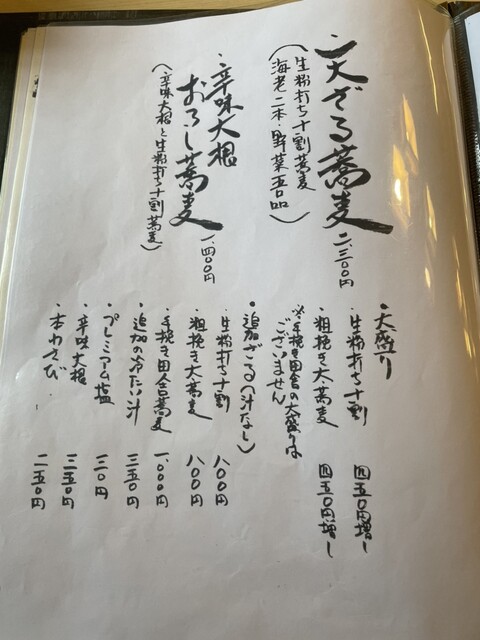 ・天ざる蕎麦
（生粉打ち十割蕎麦
海老二本・野菜五品）
二、三〇〇円
・辛味大根
おろし蕎麦
（辛味大根と生粉打ち十割蕎麦）
一、四〇〇円
・大盛り
・生粉打ち十割 四五〇円増し
・粗挽き太蕎麦 四五〇円増し
※手挽き田舎の大盛りは
ございません
・追加ざる（汁なし）
・生粉打ち十割 八〇〇円
・粗挽き太蕎麦 八〇〇円
・手挽き田舎蕎麦 一、〇〇〇円
・追加の冷たい汁 三五〇円
・プレミアム塩 三〇円
・辛味大根 三五〇円
・本わさび 二五〇円